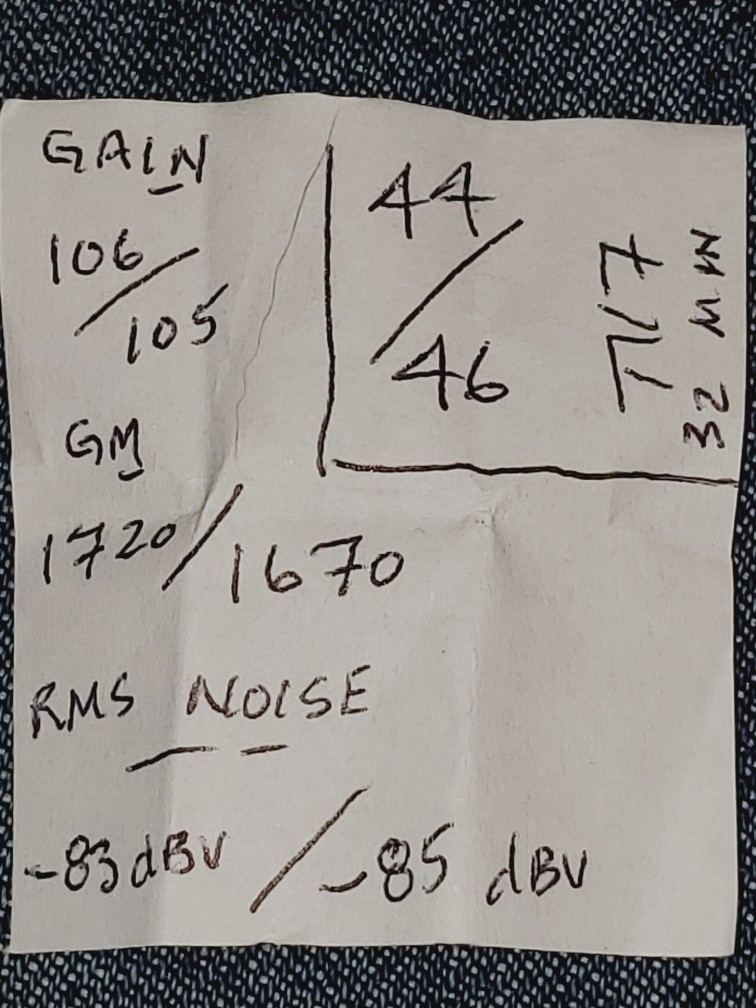 GAIN
106/105
GM
1720/1670
RMS NOISE
-83dBV/-85 dBV
44/46
7/7
32 MIN